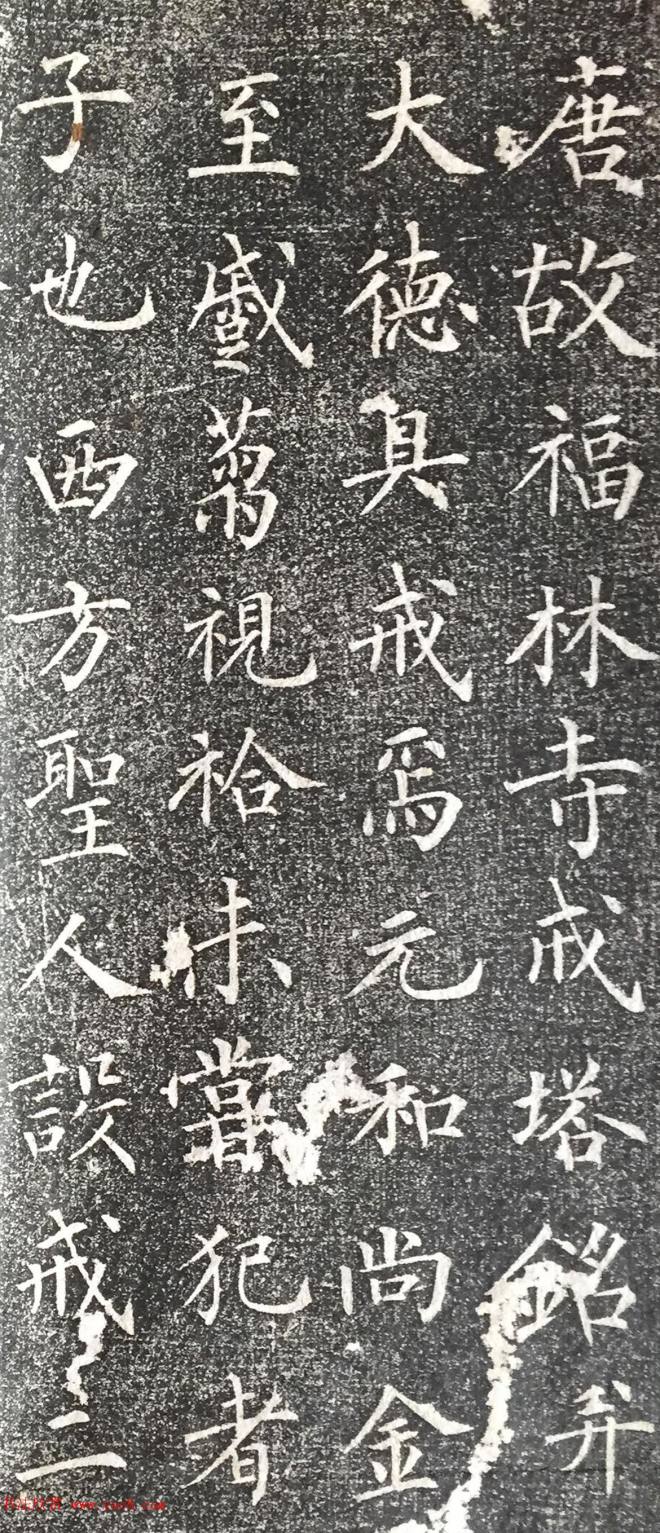 唐故福林寺戒塔銘并
大德具戒焉元和尚金
至盛蒭視袷未嘗犯者
子也西方聖人設戒二